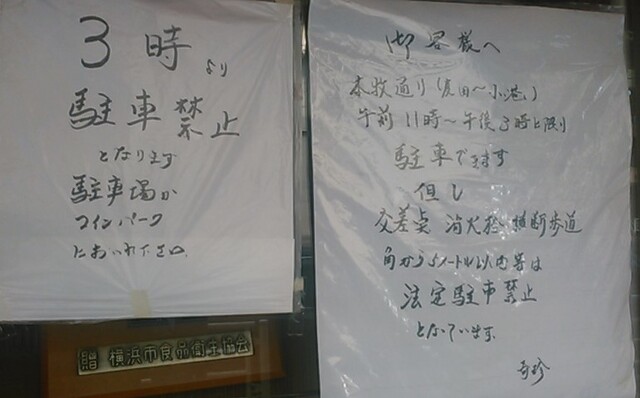 3時より
駐車禁止
となります
駐車場か
コインパーク
においれ下さい。
贈 横浜市食品衛生協会
お客様へ
本牧通り(麦田〜小港)
午前11時〜午後3時に限り
駐車できます
但し
交差点 消火栓 横断歩道
角から5メートル以内等は
法定駐車禁止
となっています。
奇珍